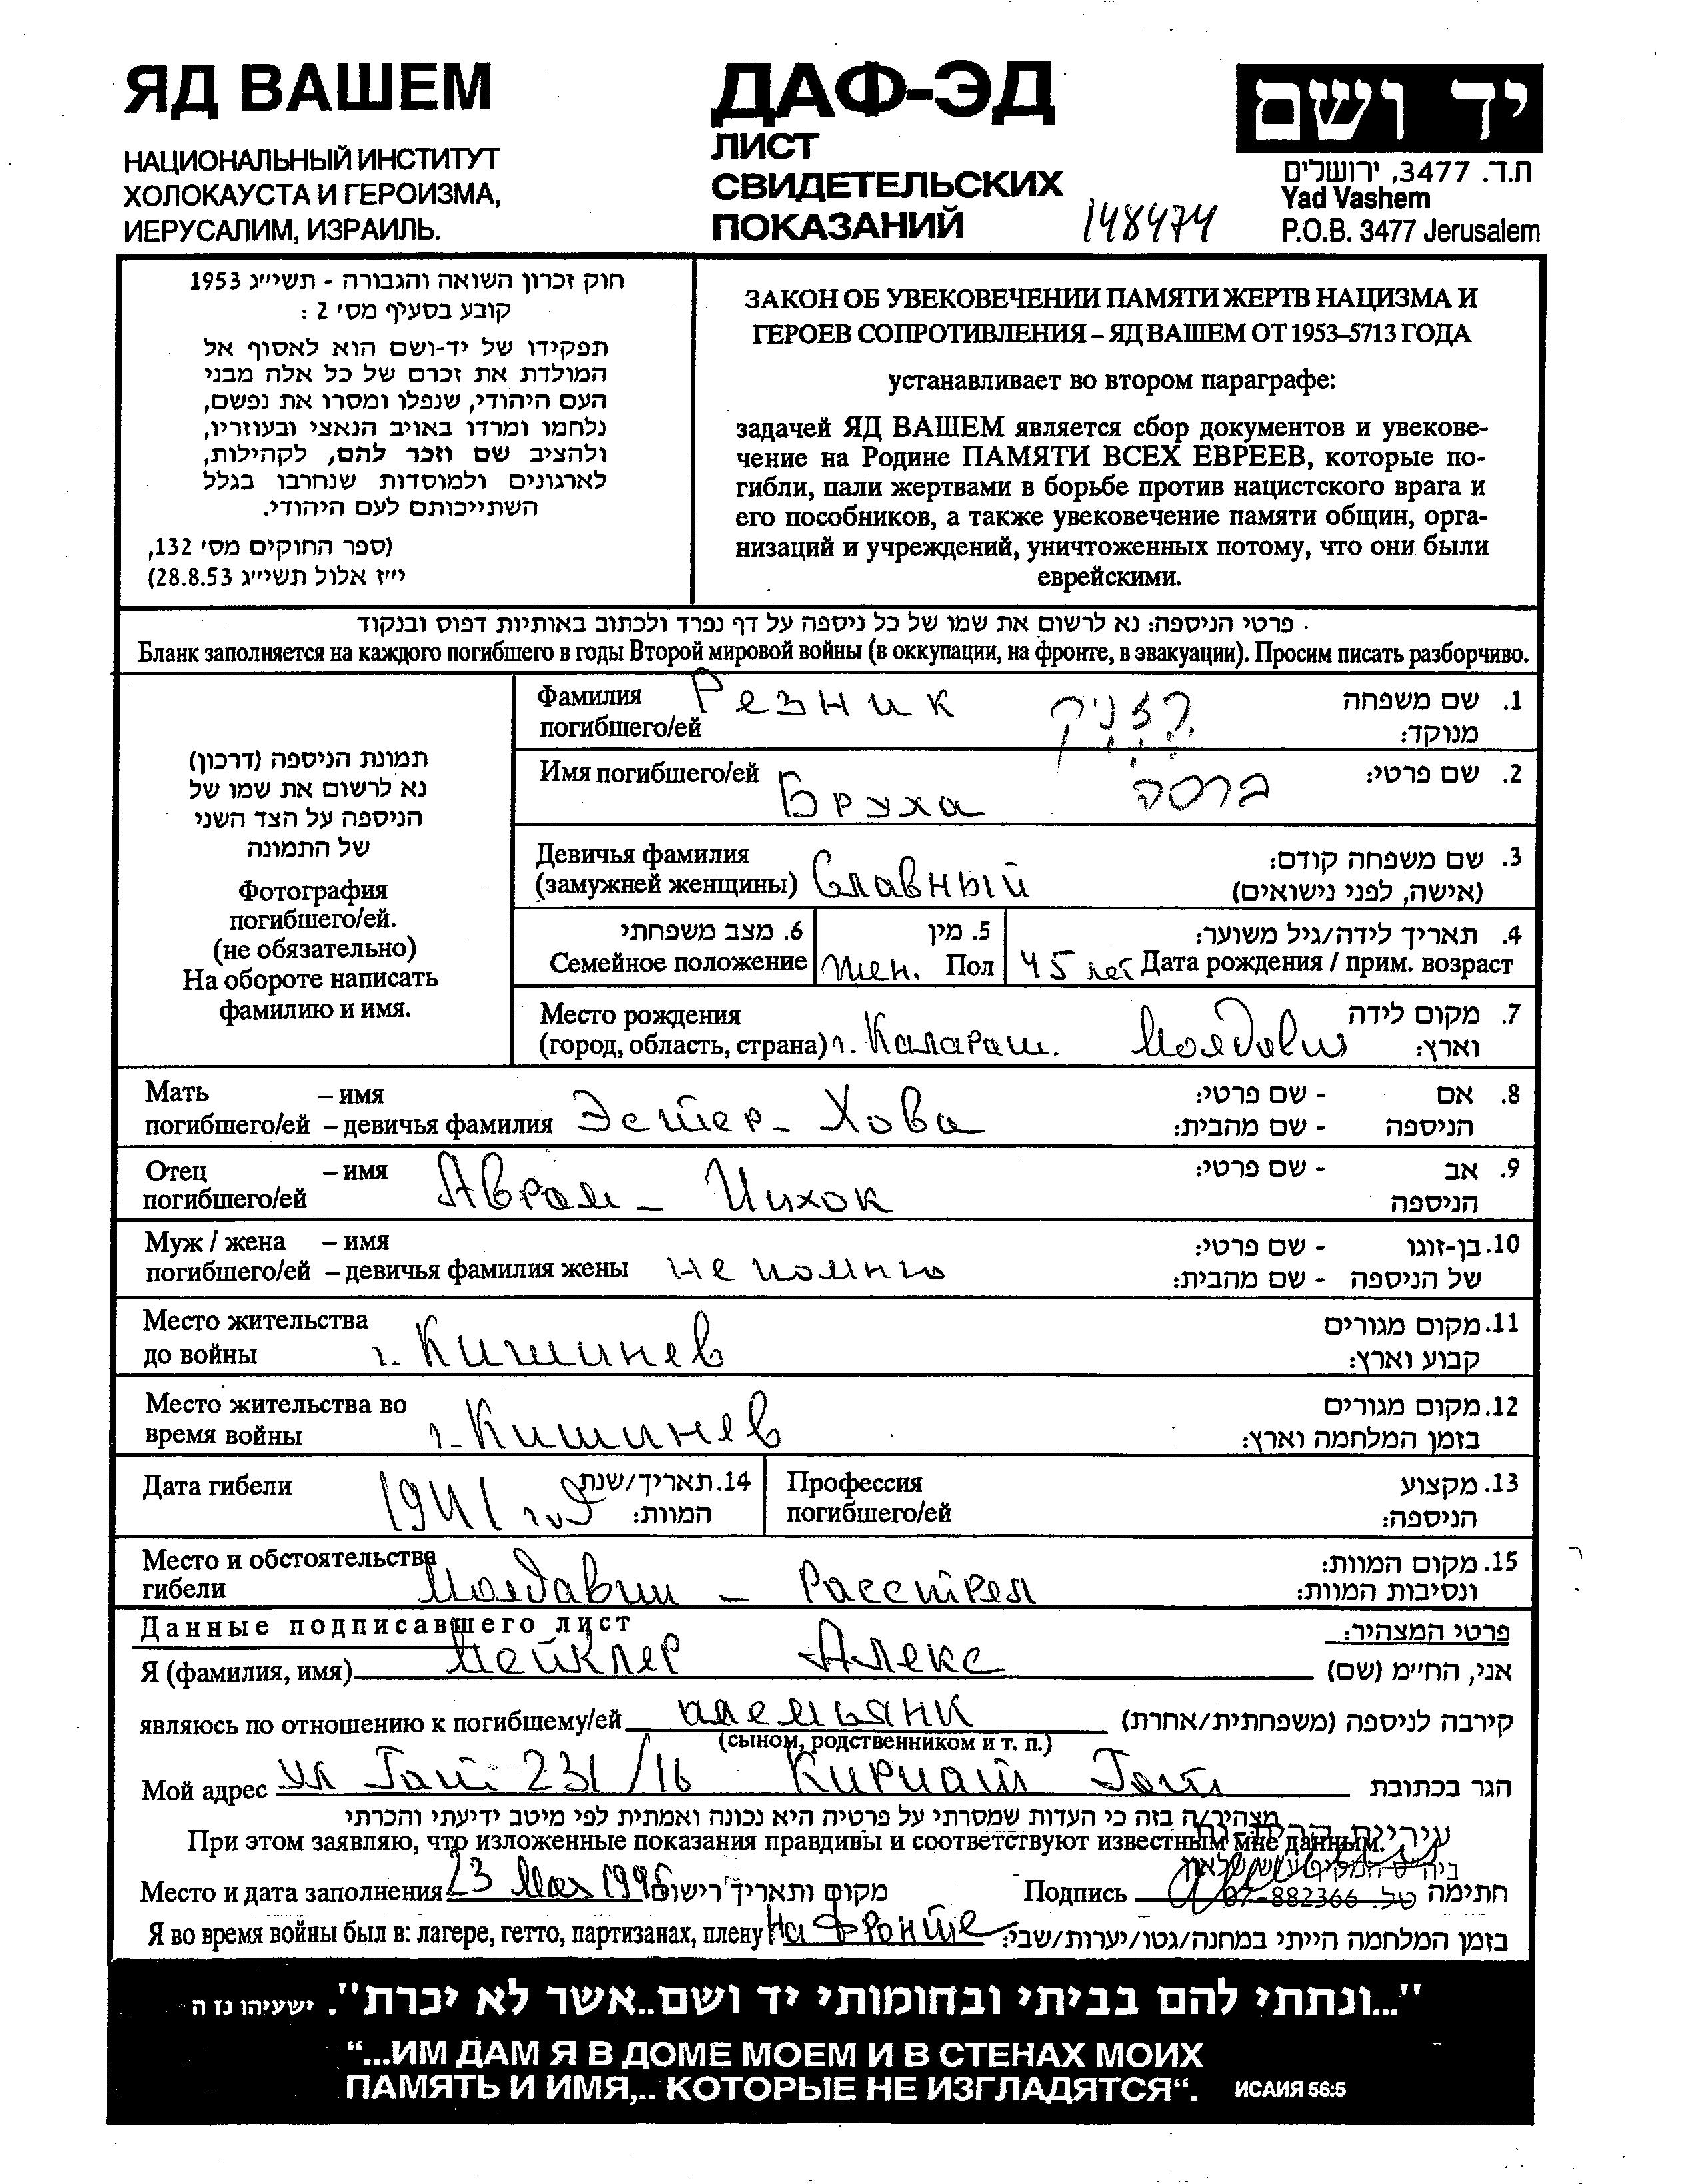 ЯД ВАШЕМ
НАЦИОНАЛЬНЫЙ ИНСТИТУТ
ХОЛОКАУСТА И ГЕРОИЗМА,
ИЕРУСАЛИМ, ИЗРАИЛЬ.
ДАФ-ЭД
ЛИСТ
СВИДЕТЕЛЬСКИХ
ПОКАЗАНИЙ
148474
יד ושם
ת.ד. 3477, ירושלים
Yad Vashem
P.O.B. 3477 Jerusalem
חוק זכרון השואה והגבורה - תשי״ג 1953
קובע בסעיף מס׳ 2 :
תפקידו של יד-ושם הוא לאסוף אל
המולדת את זכרם של כל אלה מבני
העם היהודי, שנפלו ומסרו את נפשם,
נלחמו ומרדו באויב הנאצי ובעוזריו,
ולהציב שם וזכר להם, לקהילות,
לארגונים ולמוסדות שנחרבו בגלל
השתייכותם לעם היהודי.
(ספר החוקים מס׳ 132,
י״ז אלול תשי״ג 28.8.53)
ЗАКОН ОБ УВЕКОВЕЧЕНИИ ПАМЯТИ ЖЕРТВ НАЦИЗМА И
ГЕРОЕВ СОПРОТИВЛЕНИЯ – ЯД ВАШЕМ ОТ 1953–5713 ГОДА
устанавливает во втором параграфе:
задачей ЯД ВАШЕМ является сбор документов и увекове-
чение на Родине ПАМЯТИ ВСЕХ ЕВРЕЕВ, которые по-
гибли, пали жертвами в борьбе против нацистского врага и
его пособников, а также увековечение памяти общин, орга-
низаций и учреждений, уничтоженных потому, что они были
еврейскими.
פרטי הניספה: נא לרשום את שמו של כל ניספה על דף נפרד ולכתוב באותיות דפוס ובנקוד
Бланк заполняется на каждого погибшего в годы Второй мировой войны (в оккупации, на фронте, в эвакуации). Просим писать разборчиво.
תמונת הניספה (דרכון)
נא לרשום את שמו של
הניספה על הצד השני
של התמונה
Фотография
погибшего/ей.
(не обязательно)
На обороте написать
фамилию и имя.
Фамилия Резник רזניק 1. שם משפחה
погибшего/ей מנוקד:
Имя погибшего/ей Бруха ברכה 2. שם פרטי:
Девичья фамилия 3. שם משפחה קודם:
(замужней женщины) Славный (אישה, לפני נישואים)
6. מצב משפחתי 5. מין 4. תאריך לידה/גיל משוער:
Семейное положение жен. Пол 45 лет Дата рождения / прим. возраст
Место рождения 7. מקום לידה
(город, область, страна) г. Калараш. Молдавия וארץ:
Мать – имя 8. אם - שם פרטי:
погибшего/ей – девичья фамилия Эстер - Хова הניספה - שם מהבית:
Отец – имя 9. אב - שם פרטי:
погибшего/ей Аврам - Ицхок הניספה
Муж / жена – имя 10. בן-זוגו - שם פרטי:
погибшего/ей – девичья фамилия жены не помню של הניספה - שם מהבית:
Место жительства 11. מקום מגורים
до войны г. Кишинев קבוע וארץ:
Место жительства во 12. מקום מגורים
время войны г. Кишинев בזמן המלחמה וארץ:
Дата гибели 1941 год 14. תאריך/שנת Профессия 13. מקצוע
המוות: погибшего/ей הניספה:
Место и обстоятельства 15. מקום המוות:
гибели Молдавии - Расстрел ונסיבות המוות:
Данные подписавшего лист פרטי המצהיר:
Я (фамилия, имя) Мейклер Алекс אני, הח״מ (שם)
являюсь по отношению к погибшему/ей племьяник קירבה לניספה (משפחתית/אחרת)
(сыном, родственником и т. п.)
Мой адрес Ул Гат 231/16 Кириат Гат הגר בכתובת
מצהיר/ה בזה כי העדות שמסרתי על פרטיה היא נכונה ואמתית לפי מיטב ידיעתי והכרתי
При этом заявляю, что изложенные показания правдивы и соответствуют известным мне данным.
עיריית קרית-גת
Место и дата заполнения 23 Мая 1996 מקום ותאריך רישום Подпись חתימה
טל. 07-882366
Я во время войны был в: лагере, гетто, партизанах, плену На Фронте בזמן המלחמה הייתי במחנה/גטו/יערות/שבי:
"...ונתתי להם בביתי ובחומותי יד ושם..אשר לא יכרת". ישעיהו נז ה
“...ИМ ДАМ Я В ДОМЕ МОЕМ И В СТЕНАХ МОИХ
ПАМЯТЬ И ИМЯ,.. КОТОРЫЕ НЕ ИЗГЛАДЯТСЯ“. ИСАИЯ 56:5